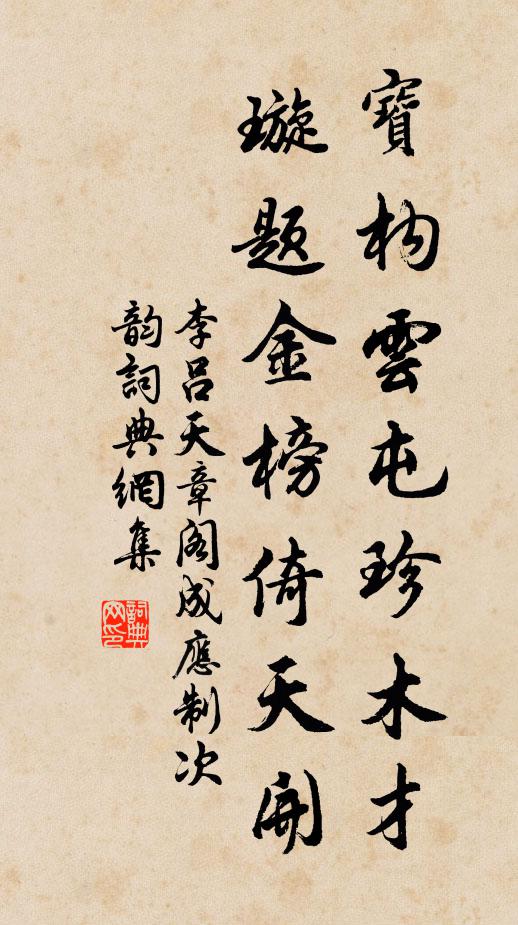 寶构雲屯珍木才
璇题金榜倚天開
李呂天章阁成應制次
韵詞典網集
詞典
网印